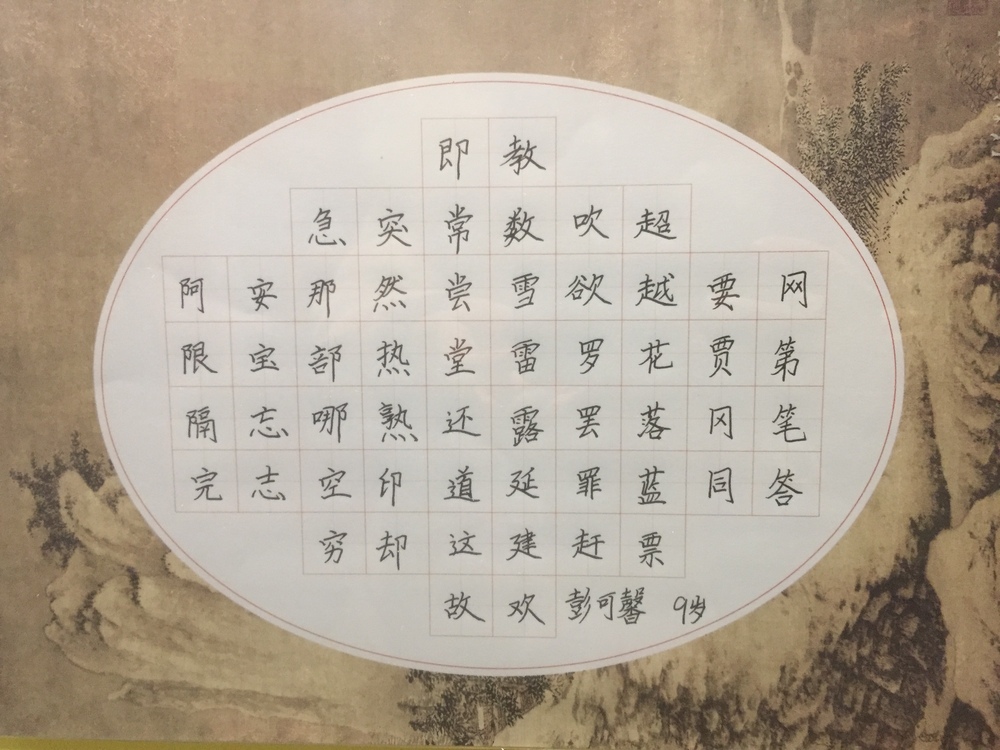 即教
急突常数吹超
阿安那然尝雪欲越要网
限宝部热堂雷罗花贾第
隔忘哪熟还露罢落冈笔
完志空印道延罪蓝同答
穷却这建赶票
故欢彭可馨 9岁